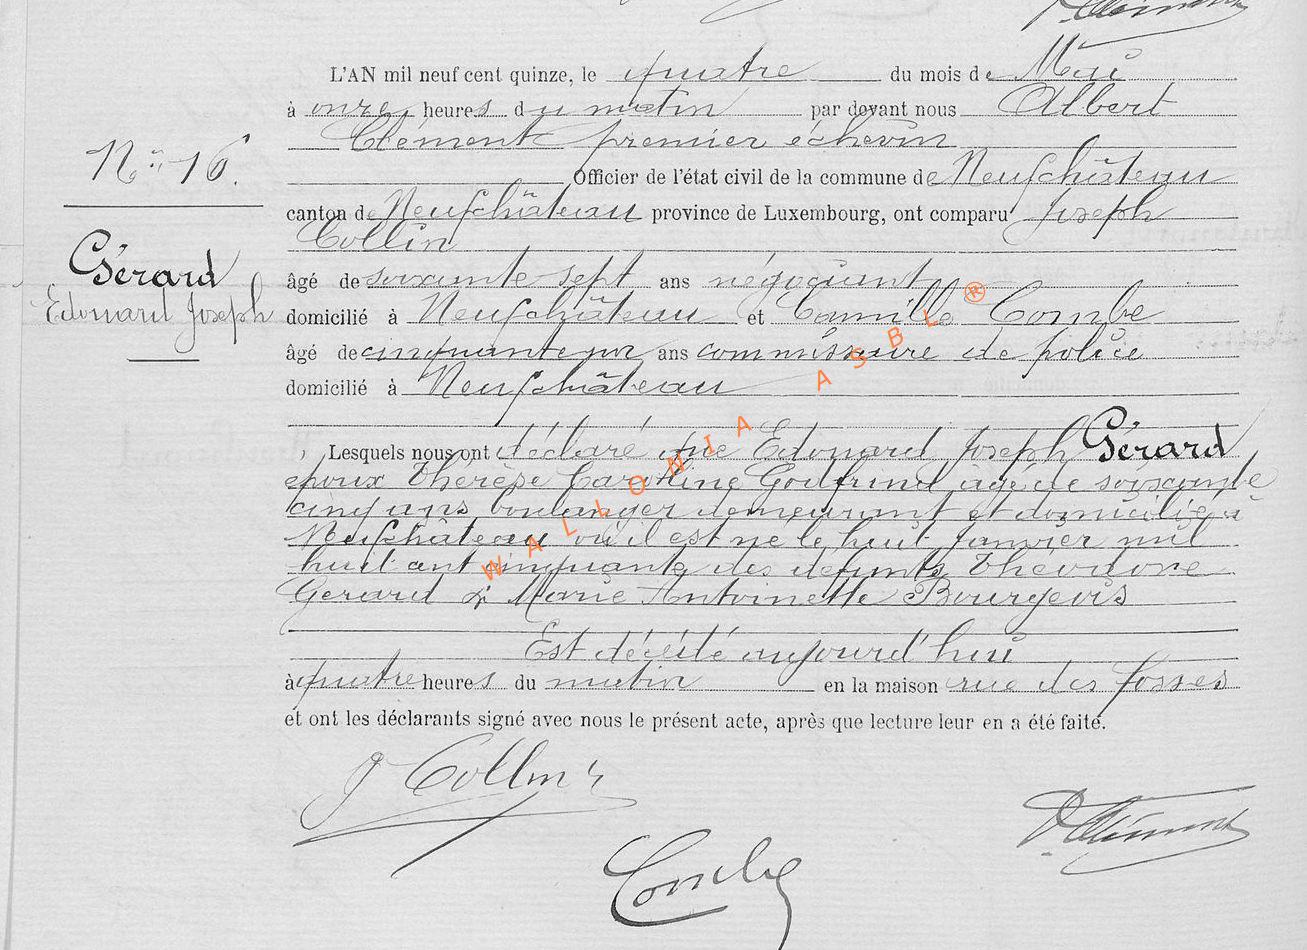 L'AN mil neuf cent quinze, le quatre du mois de Mai
à onze heures du matin par devant nous Albert
Clément premier échevin
N° 16.
Officier de l'état civil de la commune de Neufchâteau
canton de Neufchâteau province de Luxembourg, ont comparu Joseph
Collin
Gérard
Edouard Joseph
âgé de soixante sept ans négociant
domicilié à Neufchâteau et Camille Combe
âgé de cinquante un ans commissaire de police
domicilié à Neufchâteau
WALLONIA ASBL ®
Lesquels nous ont déclaré que Edouard Joseph Gérard
époux Thérèse Caroline Godfrind âgé de soixante
cinq ans boulanger demeurant et domicilié à
Neufchâteau où il est né le huit Janvier mil
huit cent cinquante des défunts Théodore
Gérard & Marie Antoinette Bourgeois
Est décédé aujourd'hui
à quatre heures du matin en la maison rue des fossés
et ont les déclarants signé avec nous le présent acte, après que lecture leur en a été faite.
J Collin
Combe